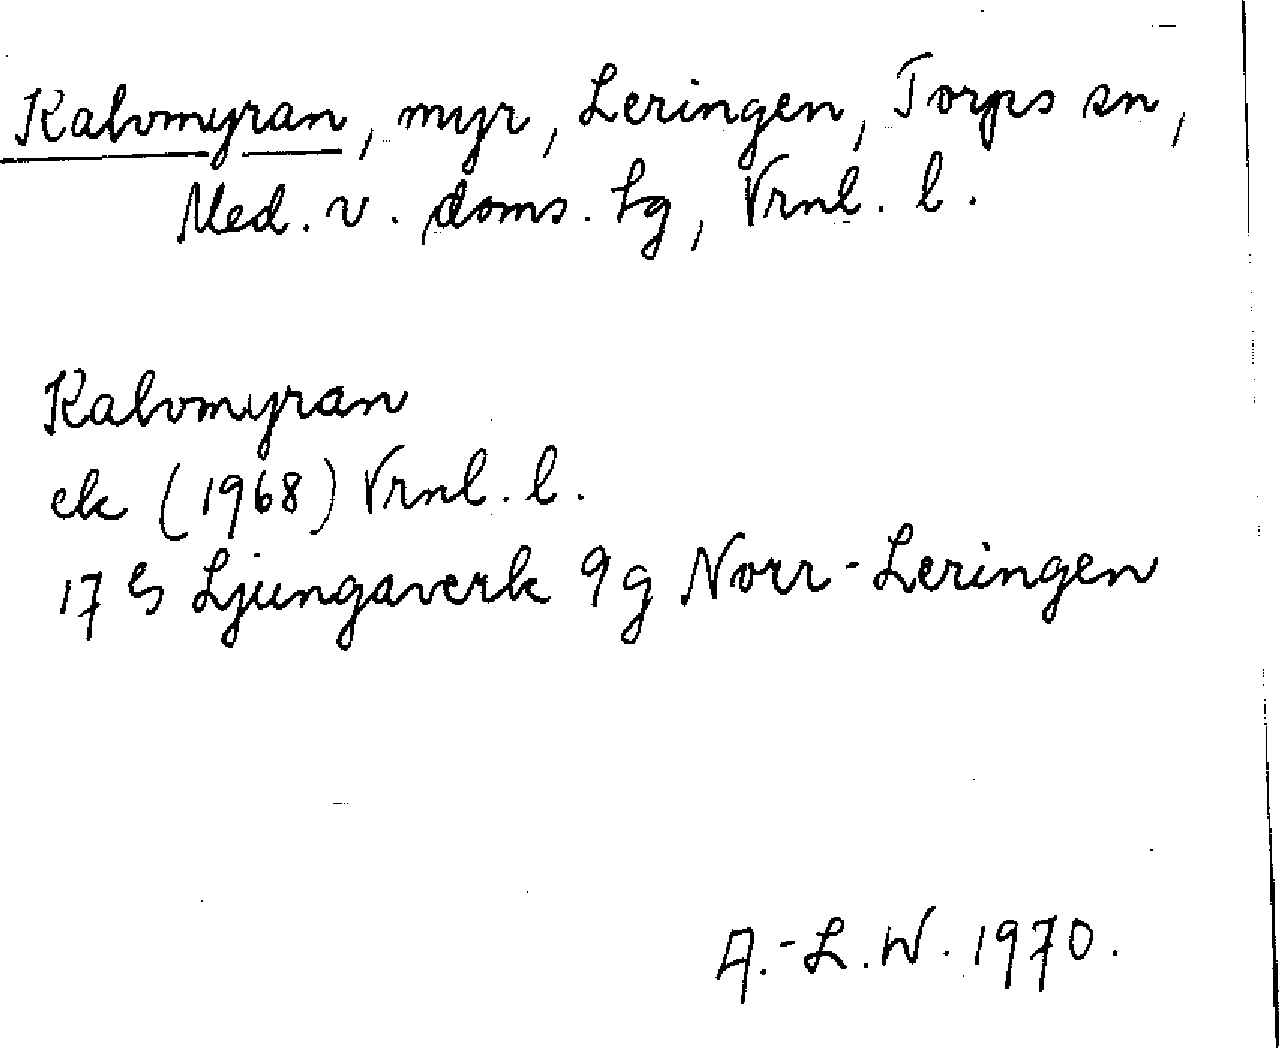 Kalvmyran, myr, Leringen, Torps sn,
Med. v. doms. tg, Vrnl. l.
Kalvmyran
ek (1968) Vrnl. l.
17 G Ljungaverk 9g Norr-Leringen
A.-L.W. 1970.